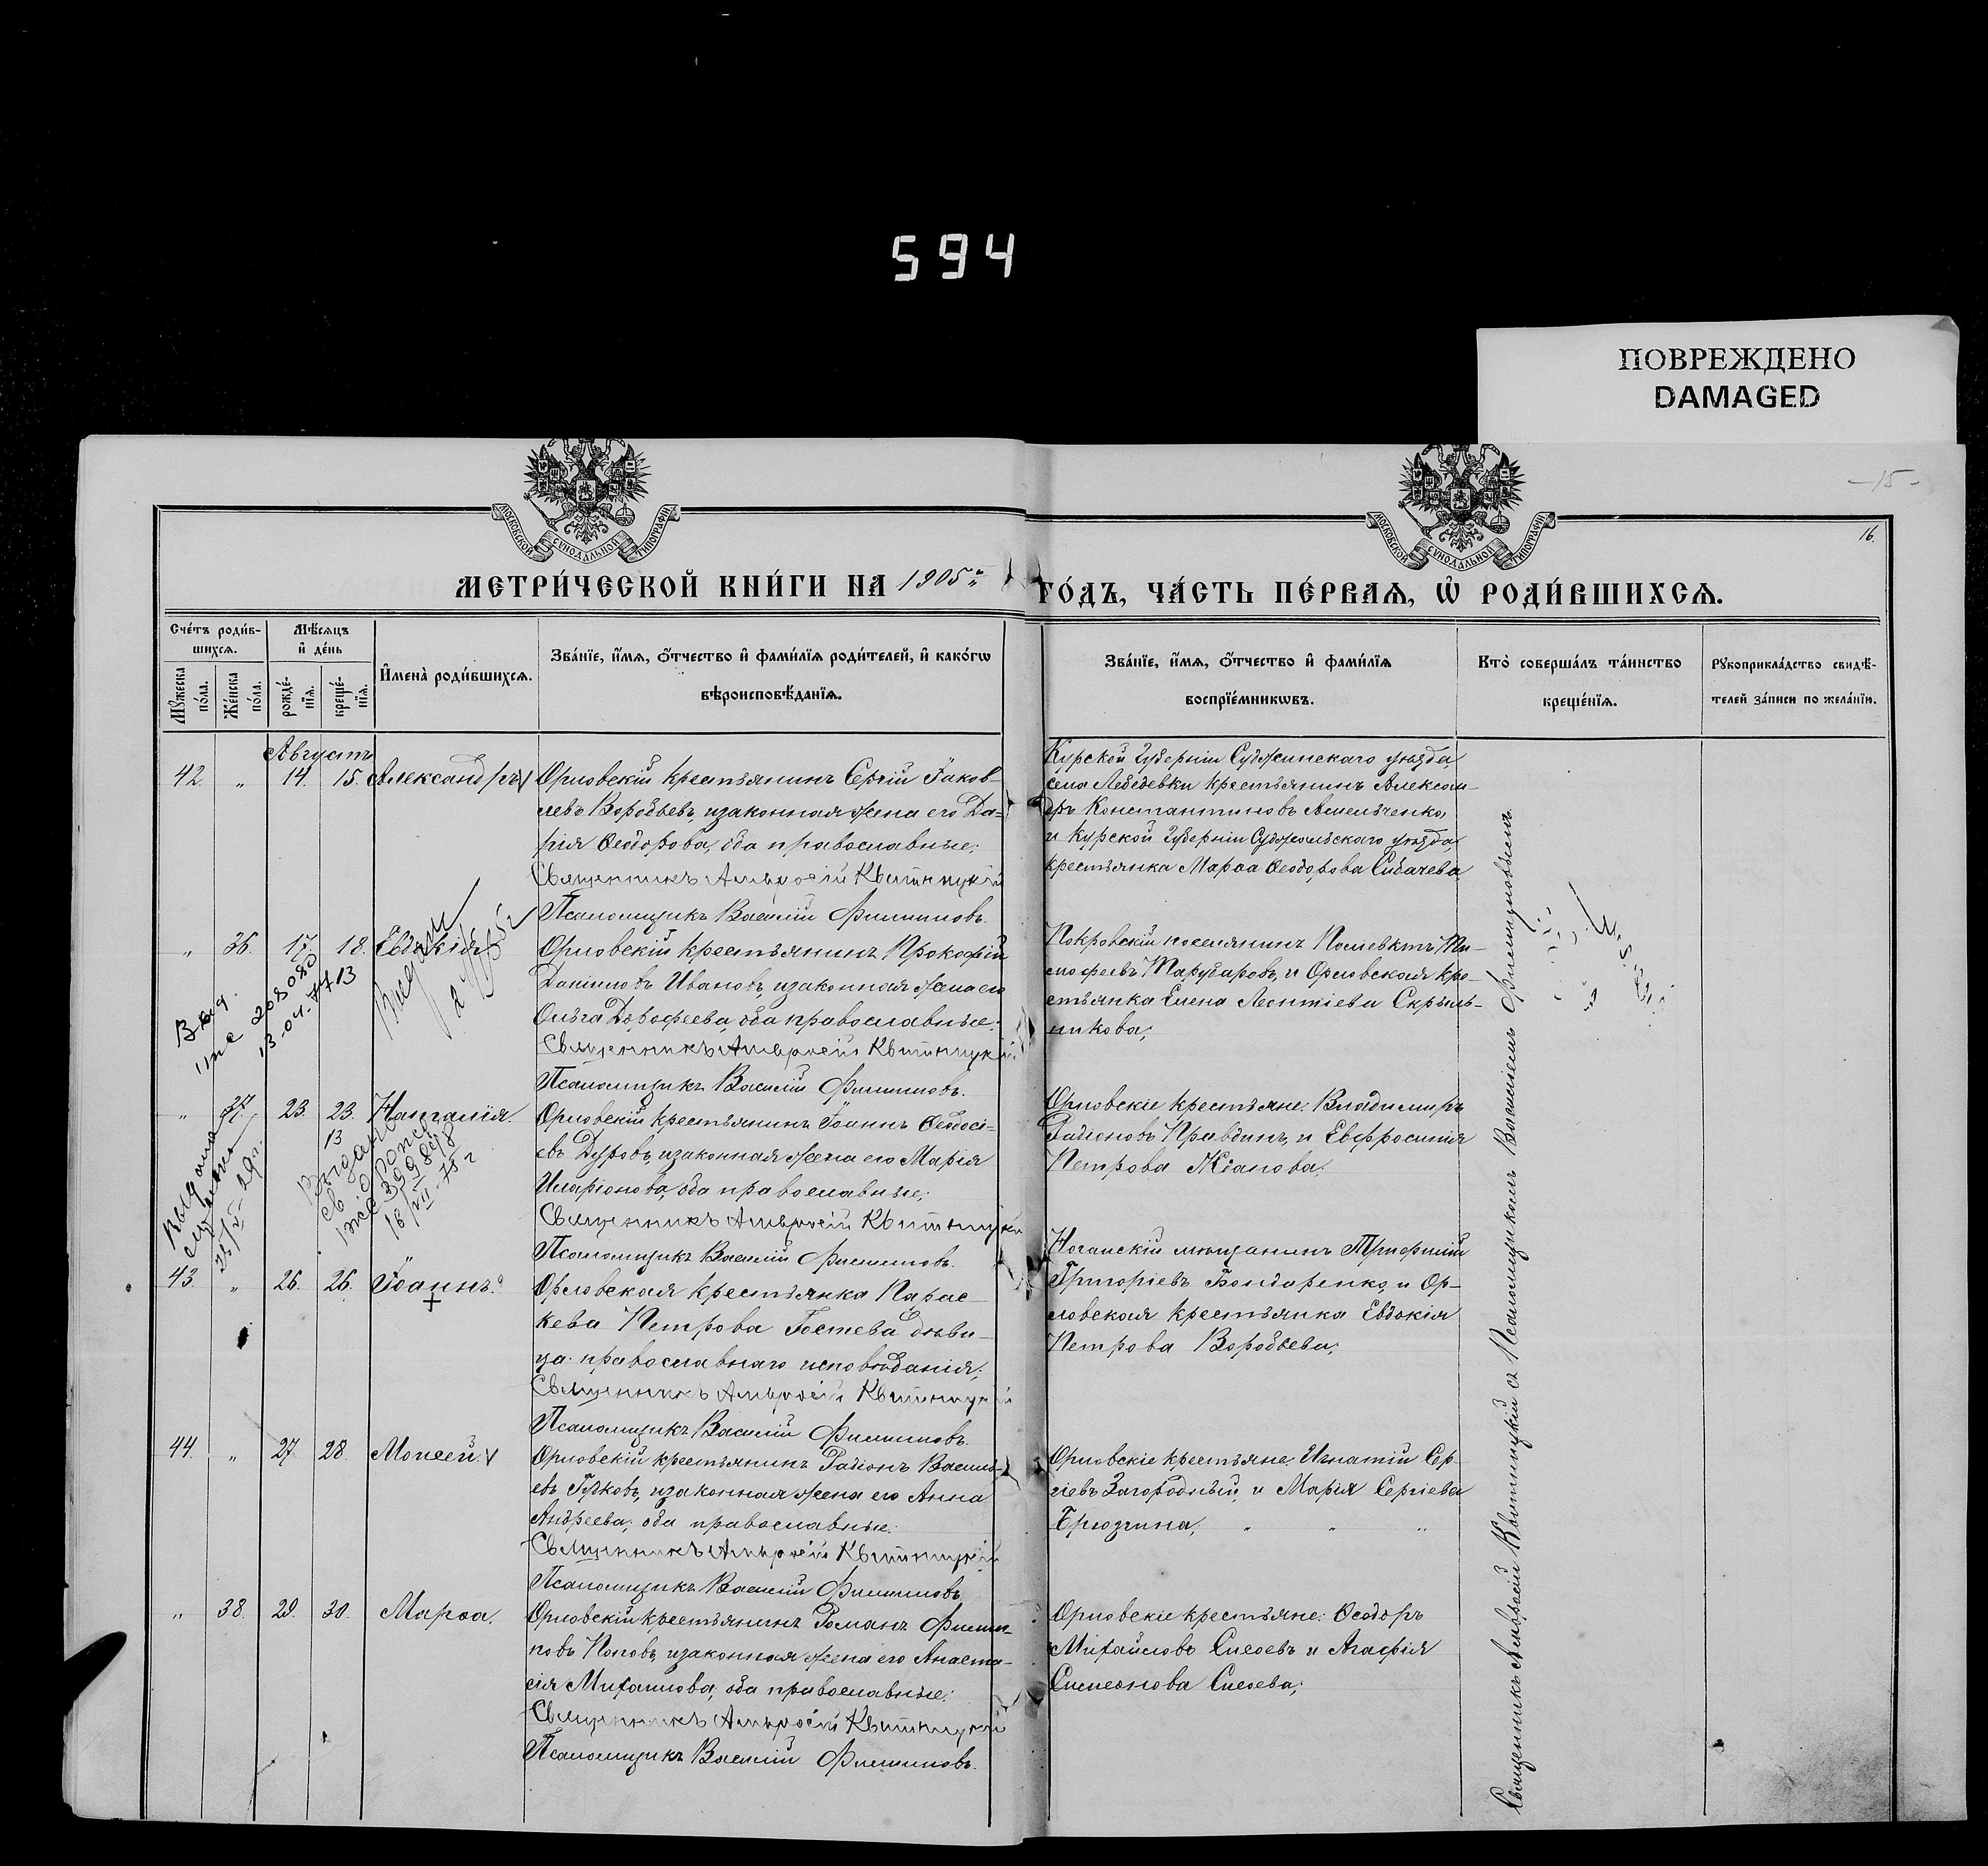 594
ПОВРЕЖДЕНО
DAMAGED
-15-
16.
МОСКОВСКОЙ СѴНОДАЛЬНОЙ ТИПОГРАФІИ
МОСКОВСКОЙ СѴНОДАЛЬНОЙ ТИПОГРАФІИ
МЕТРИ́ЧЕСКОЙ КНИ́ГИ НА 1905 ГО́ДЪ, ЧА́СТЬ ПЕ́РВАѦ, Ѡ҆ РОДИ́ВШИХСѦ.
Сче́тъ роди́в-
шихсѧ.
Мꙋ́жеска по́ла.
Же́нска по́ла.
Мѣ́сѧцъ
и҆ де́нь
рожде́-
нїѧ.
креще́-
нїѧ.
И҆мена̀ роди́вшихсѧ.
Зва́нїе, и҆́мѧ, ѻ҆́тчество и҆ фами́лїѧ роди́телей, и҆ како́гѡ
вѣроисповѣ́данїѧ.
Зва́нїе, и҆́мѧ, ѻ҆́тчество и҆ фами́лїѧ
воспрїе́мникѡвъ.
Кто̀ соверша́лъ та́инство
креще́нїѧ.
Рꙋкоприкла́дство свидѣ́-
телей за́писи по жела́нїю.
Августъ
42. " 14. 15. Александръ
Орловскій крестьянинъ Сергій Іаков-
левъ Воробьевъ, и законная жена его Да-
рія Ѳеодорова, оба православные;
Священникъ Амвросій Квитницкій
Псаломщикъ Василій Филиповъ.
Курской губерніи Суджинскаго уѣзда,
села Лебедевки крестьянинъ Алексан-
дръ Константиновъ Амельченко,
и Курской губерніи Суджанскаго уѣзда,
крестьянка Марѳа Ѳеодорова Сибачева
" 36. 17. 18. Евдокія
Орловскій крестьянинъ Прокофій
Даніиловъ Ивановъ, и законная жена его
Ольга Дорофеева, оба православные.
Священникъ Амвросій Квитницкій
Псаломщикъ Василій Филиповъ.
Покровскій поселянинъ Полевктъ Ти-
мофеевъ Таругаровъ, и Орловская кре-
стьянка Елена Леонтіева Скрыль-
никова;
13-04-77 13
" 37. 23. 23. Наталія.
Орловскій крестьянинъ Іоаннъ Ѳеодосі-
евъ Дуровъ, и законная жена его Марія
Иларіонова, оба православные;
Священникъ Амвросій Квитницкій
Псаломщикъ Василій Филиповъ.
Орловскіе крестьяне: Владимиръ
Радіоновъ Правдинъ, и Евфросинія
Петрова Жданова;
Выдано
43. " 26. 26. Іоаннъ.
Орловская крестьянка Парас-
кева Петрова Гостева дѣви-
ца православнаго исповѣданія;
Священникъ Амвросій Квитницкій
Псаломщикъ Василій Филиповъ.
Ногайскій мѣщанинъ Трифилій
Григоріевъ Бондаренко, и Ор-
ловская крестьянка Евдокія
Петрова Воробьева;
44. " 27. 28. Моисей.
Орловскій крестьянинъ Радіонъ Василь-
евъ Гудковъ, и законная жена его Анна
Андреева; оба православные.
Священникъ Амвросій Квитницкій
Псаломщикъ Василій Филиповъ.
Орловскіе крестьяне: Игнатій Сер-
гіевъ Загородный, и Марія Сергіева
Брюзгина, " " "
" 38. 29. 30. Марѳа.
Орловскій крестьянинъ Романъ Филип-
повъ Поповъ, и законная жена его Анаста-
сія Михаилова; оба православные.
Священникъ Амвросій Квитницкій
Псаломщикъ Василій Филиповъ.
Орловскіе крестьяне: Ѳеодоръ
Михайловъ Сысоевъ и Агафія
Симеонова Сысоева;
Священникъ Амвросій Квитницкій съ Псаломщикомъ Василіемъ Филиповымъ